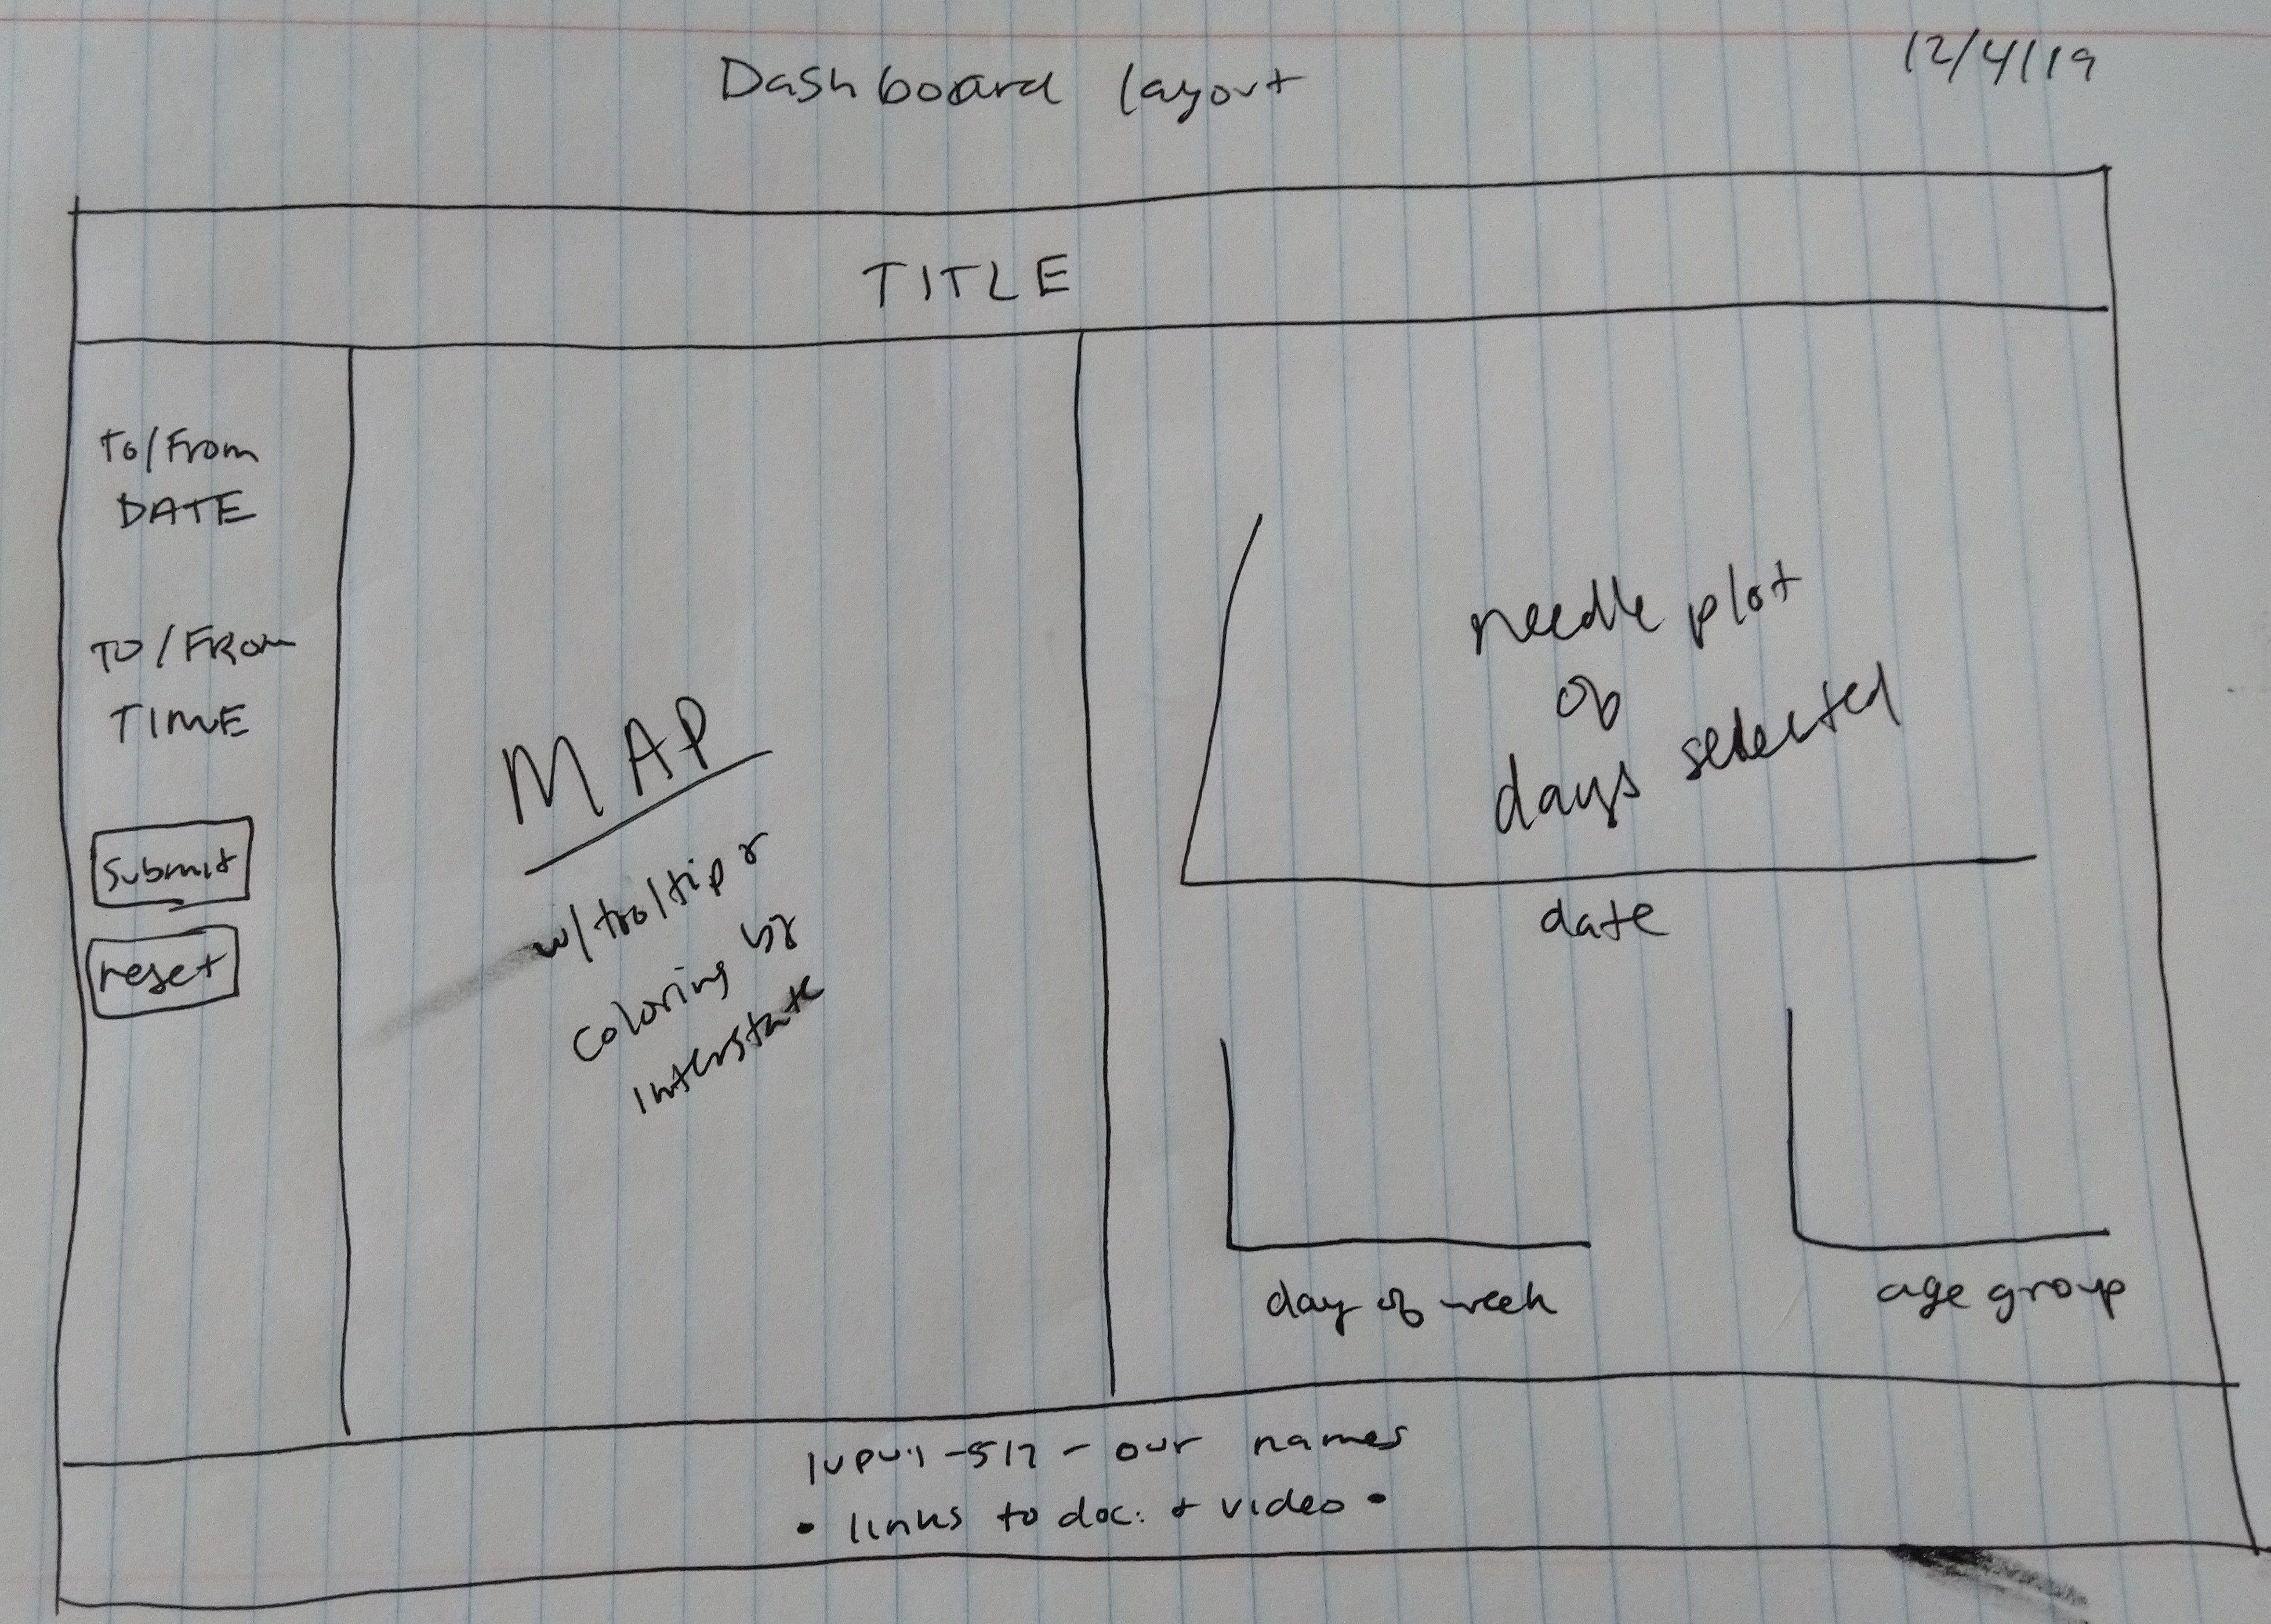 Dashboard layout
12/4/19
TITLE
To/From
DATE
TO/FROM
TIME
Submit
reset
MAP
w/ tooltip &
coloring by
interstate
needle plot
of
days selected
date
day of week
age group
IUPUI-517 - our names
• links to doc. + video •